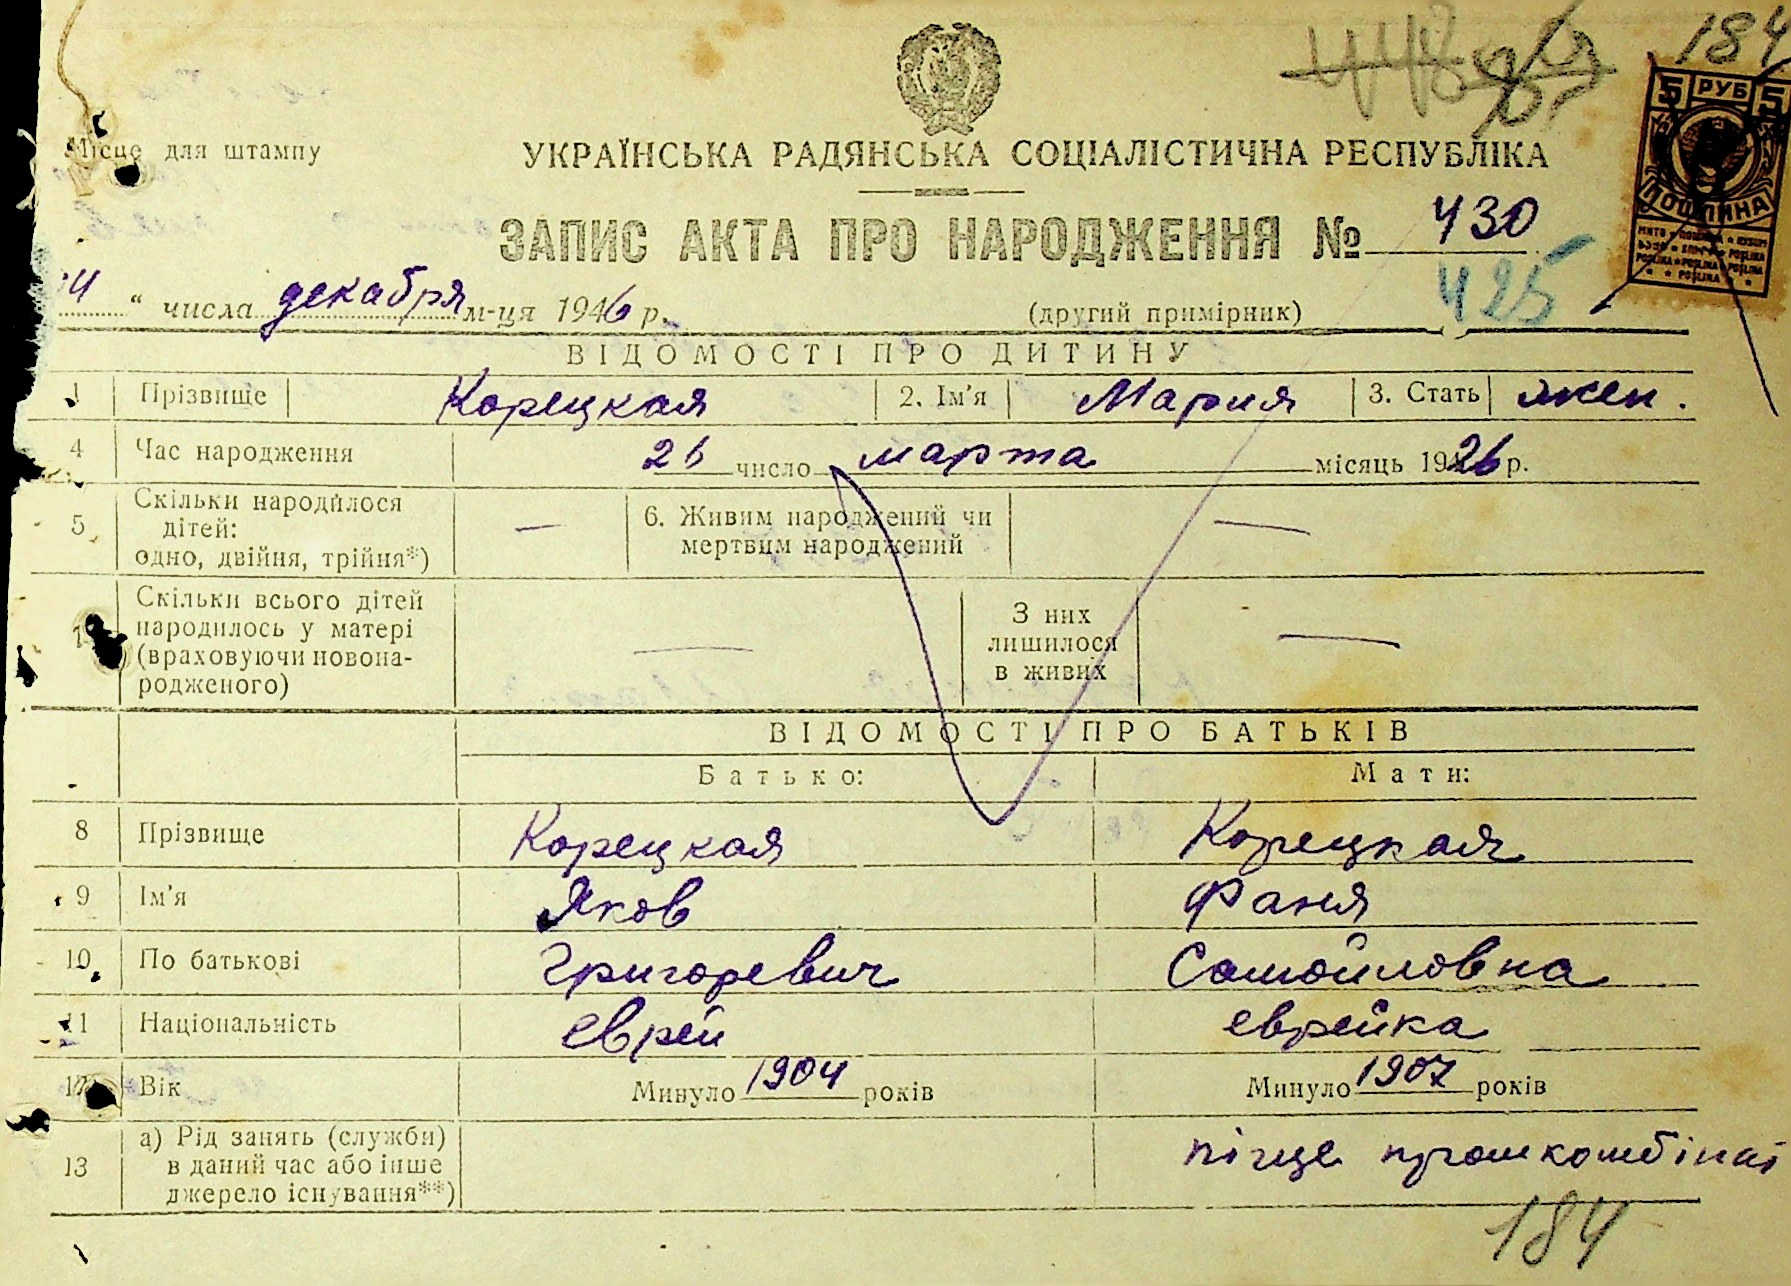 184
448
5 РУБ 5
ПОШЛИНА
Місце для штампу
УКРАЇНСЬКА РАДЯНСЬКА СОЦІАЛІСТИЧНА РЕСПУБЛІКА
ЗАПИС АКТА ПРО НАРОДЖЕННЯ № 430
425
4 " числа декабря м-ця 1946 р. (другий примірник)
ВІДОМОСТІ ПРО ДИТИНУ
1 Прізвище Корецкая 2. Ім'я Мария 3. Стать жен.
4 Час народження 26 число марта місяць 1926 р.
5 Скільки народилося дітей: одно, двійня, трійня*) — 6. Живим народжений чи мертвим народжений —
7 Скільки всього дітей народилось у матері (враховуючи новонародженого) — З них лишилося в живих —
ВІДОМОСТІ ПРО БАТЬКІВ
Батько: Мати:
8 Прізвище Корецкая Корецкая
9 Ім'я Яков Фаня
10 По батькові Григоревич Самойловна
11 Національність еврей еврейка
12 Вік Минуло 1904 років Минуло 1907 років
13 а) Рід занять (служби) в даний час або інше джерело існування**)
184